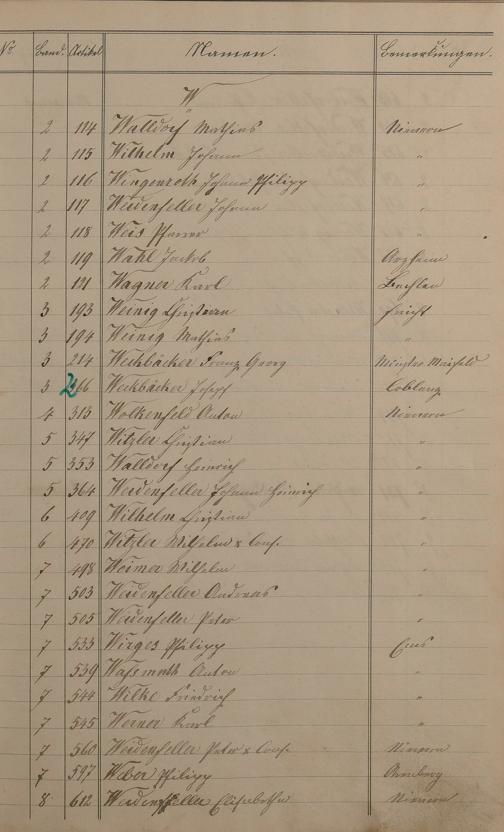 No. Band. Artikel Namen. Bemerkungen.
W
2 114 Walldorf Mathias Nievern
2 115 Wilhelm Johann "
2 116 Wingenroth Johann Philipp "
2 117 Weidenfeller Johann "
2 118 Weis Pfarrer "
2 119 Wahl Jackob Arzheim
2 121 Wagner Karl
3 193 Weinig Christian Fricht
3 194 Weinig Mathias "
3 214 Weckbäcker Franz Georg Münster Maifeld
3 266 Weckbäcker Josef Coblenz
4 315 Wolkenfeld Anton Nievern
5 347 Witzler Christian "
5 353 Walldorf Heinrich "
5 364 Weidenfeller Johann Heinrich "
6 409 Wilhelm Christian "
6 470 Witzler Wilhelm & Cons. "
7 498 Weimer Wilhelm "
7 503 Weidenfeller Andreas "
7 505 Weidenfeller Peter "
7 533 Wirges Philipp Ems
7 539 Waßmuth Anton "
7 544 Wilke Friedrich "
7 545 Werner Karl "
7 560 Weidenfeller Peter & Cons. Nievern
7 597 Weber Philipp
8 612 Weidenfeller Elisabetha Nievern